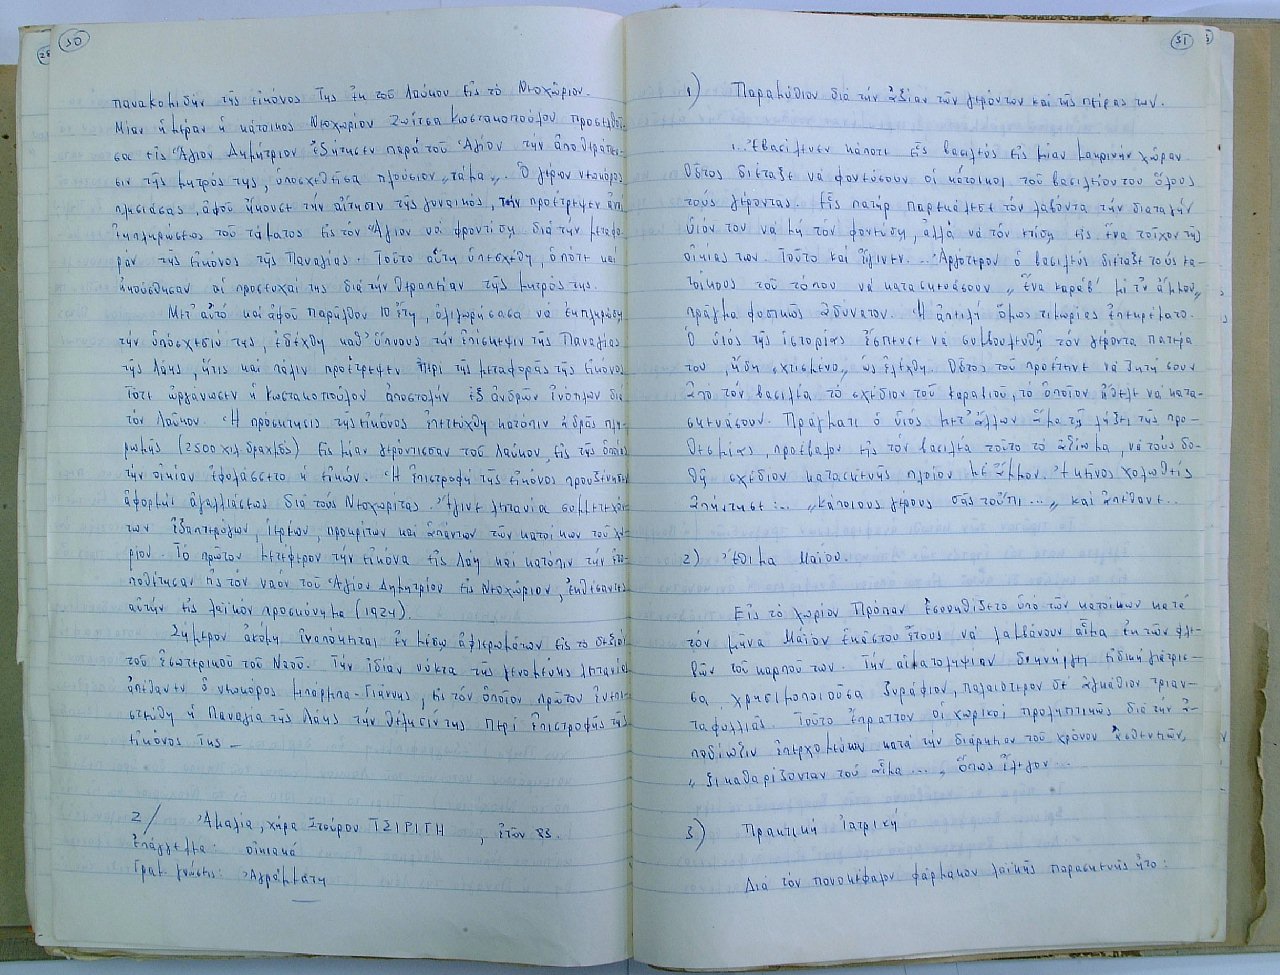 30
πανακομιδὴν τῆς εἰκόνος Της ἐκ τοῦ Λαύκου εἰς τὸ Νεοχώριον.
Μίαν ἡμέραν ἡ κάτοικος Νεοχωρίου Ζωίτσα Κωστακοπούλου προσελθοῦ-
σα εἰς Ἅγιον Δημήτριον ἐζήτησεν παρὰ τοῦ Ἁγίου τὴν ἀποθεράπευ-
σιν τῆς μητρός της, ὑποσχεθεῖσα πλούσιον „τάμα„. Ὁ γέρων νεωκόρος
πλησιάσας, ἀφοῦ ἤκουσε τὴν αἴτησιν τῆς γυναικός, τὴν προέτρεψεν ἀντὶ
ἐκπληρώσεως τοῦ τάματος εἰς τὸν Ἅγιον νὰ φροντίσῃ διὰ τὴν μεταφο-
ρὰν τῆς εἰκόνος τῆς Παναγίας. Τοῦτο αὕτη ὑπεσχέθη, ὁπότε καὶ
εἰσηκούσθησαν αἱ προσευχαί της διὰ τὴν θεραπείαν τῆς μητρός της.
Μετ' αὐτὸ καὶ ἀφοῦ παρῆλθον 10 ἔτη, ὀλιγωρήσασα νὰ ἐκπληρώσῃ
τὴν ὑπόσχεσίν της, ἐδέχθη καθ' ὕπνους τὴν ἐπίσκεψιν τῆς Παναγίας
τῆς Λάης, ἥτις καὶ πάλιν προέτρεψεν περὶ τῆς μεταφορᾶς τῆς εἰκόνος
Τότε ὠργάνωσεν ἡ Κωστακοπούλου ἀποστολὴν ἐξ ἀνδρῶν ἐνόπλων διὰ
τὸν Λαῦκον. Ἡ προσκτησις τῆς εἰκόνος ἐπετεύχθη κατόπιν ἁδρᾶς πλη-
ρωμῆς (2500 χιλ. δραχμὲς) εἰς μίαν γερόντισσαν τοῦ Λαύκου, εἰς τῆς ὁποίας
τὴν οἰκίαν ἐφυλάσσετο ἡ εἰκών. Ἡ ἐπιστροφὴ τῆς εἰκόνος προυξένησεν
ἀφορμὴ ἀγαλλιάσεως διὰ τοὺς Νεοχωρίτας. Ἔγινε λιτανία συμμετεχόν-
των ἑξαπτερύγων, ἱερέων, προκρίτων καὶ ἁπάντων τῶν κατοίκων τοῦ χω-
ρίου. Τὸ πρῶτον μετέφερον τὴν εἰκόνα εἰς Λάη καὶ κατόπιν τὴν ἐτο-
ποθέτησαν εἰς τὸν ναὸν τοῦ Ἁγίου Δημητρίου εἰς Νεοχώριον, ἐκθέσαντες
αὐτὴν εἰς λαϊκὸν προσκύνημα (1924).
Σήμερον ἀκόμη ἐναπόκειται ἐν μέσῳ ἀφιερωμάτων εἰς τὸ δεξιὸν
τοῦ ἐσωτερικοῦ τοῦ Ναοῦ. Τὴν ἰδίαν νύκτα τῆς γενομένης λιτανίας
ἀπέθανεν ὁ νεωκόρος μπάρμπα-Γιάννης, εἰς τὸν ὁποῖον πρῶτον ἐνεπι-
στεύθη ἡ Παναγία τῆς Λάης τὴν θέλησίν της περὶ ἐπιστροφῆς τῆς
εἰκόνος Της –
2/ Ἀμαλία, χήρα Σταύρου ΤΣΙΡΙΓΗ, ἐτῶν 83.
Ἐπάγγελμα: οἰκιακά
Γραμ. γνώσεις: Ἀγράμματη
31
1) Παραμύθιον διὰ τὴν ἀξίαν τῶν γερόντων καὶ τῆς πείρας των.
... Ἐβασίλευεν κάποτε εἷς βασιλεὺς εἰς μίαν μακρινὴν χώραν.
Οὗτος διέταξε νὰ φονεύσουν οἱ κάτοικοι τοῦ βασιλείου του ὅλους
τοὺς γέροντας. Εἷς πατὴρ παρεκάλεσε τὸν λαβόντα τὴν διαταγὴν
υἱόν του νὰ μὴ τὸν φονεύσῃ, ἀλλὰ νὰ τὸν κτίσῃ εἰς ἕνα τοῖχον τῆς
οἰκίας των. Τοῦτο καὶ ἔγινεν... Ἀργότερον ὁ βασιλεὺς διέταξε τοὺς κα-
τοίκους τοῦ τόπου νὰ κατασκευάσουν „ἕνα καράβ' μὲ τ'ν ἄμμου„
πρᾶγμα φυσικῶς ἀδύνατον. Ἡ ἀπειλὴ ὅμως τιμωρίας ἐπεκρέματο.
Ὁ υἱὸς τῆς ἱστορίας ἔσπευσε νὰ συμβουλευθῇ τὸν γέροντα πατέρα
του, „ἤδη „χτισμένο„ ὡς ἐλέχθη. Οὗτος τοῦ προέτεινε νὰ ζητήσουν
ἀπὸ τὸν βασιλέα τὸ σχέδιον τοῦ καραβιοῦ, τὸ ὁποῖον ἤθελε νὰ κατα-
σκευάσουν. Πράγματι ὁ υἱὸς μετ' ἄλλων ἅμα τῇ λήξει τῆς προ-
θεσμίας, προέβαλον εἰς τὸν βασιλέα τοῦτο τὸ ἀξίωμα, νὰ τοὺς δο-
θῇ σχέδιον κατασκευῆς πλοίου μὲ ἄμμον. Ἐκεῖνος χολωθεὶς
ἀπήντησε: ... „κάποιους γέρους σᾶς τοῦπι ...„ καὶ ἀπέθανε..
2) Ἔθιμα Μαΐου.
Εἰς τὸ χωρίον Πρόπαν ἐσυνηθίζετο ὑπὸ τῶν κατοίκων κατὰ
τὸν μῆνα Μάϊον ἑκάστου ἔτους νὰ λαμβάνουν αἷμα ἐκ τῶν φλε-
βῶν τοῦ καρποῦ των. Τὴν αἱματοληψίαν διενήργει εἰδικὴ γιάτρισ-
σα χρησιμοποιοῦσα ξυράφιον, παλαιότερον δὲ ἀγκάθιον τριαν-
ταφυλλιᾶς. Τοῦτο ἔπραττον οἱ χωρικοὶ προληπτικῶς διὰ τὴν ἀ-
ποδίωξιν ἐπερχομένων κατὰ τὴν διάρκειαν τοῦ χρόνου ἀσθενειῶν,
„ξικαθαρίζονταν τοὺ αἷμα ...„ ὅπως ἔλεγον...
3) Πρακτικὴ Ἰατρική
Διὰ τὸν πονοκέφαλον φάρμακον λαϊκῆς παρασκευῆς ἦτο: